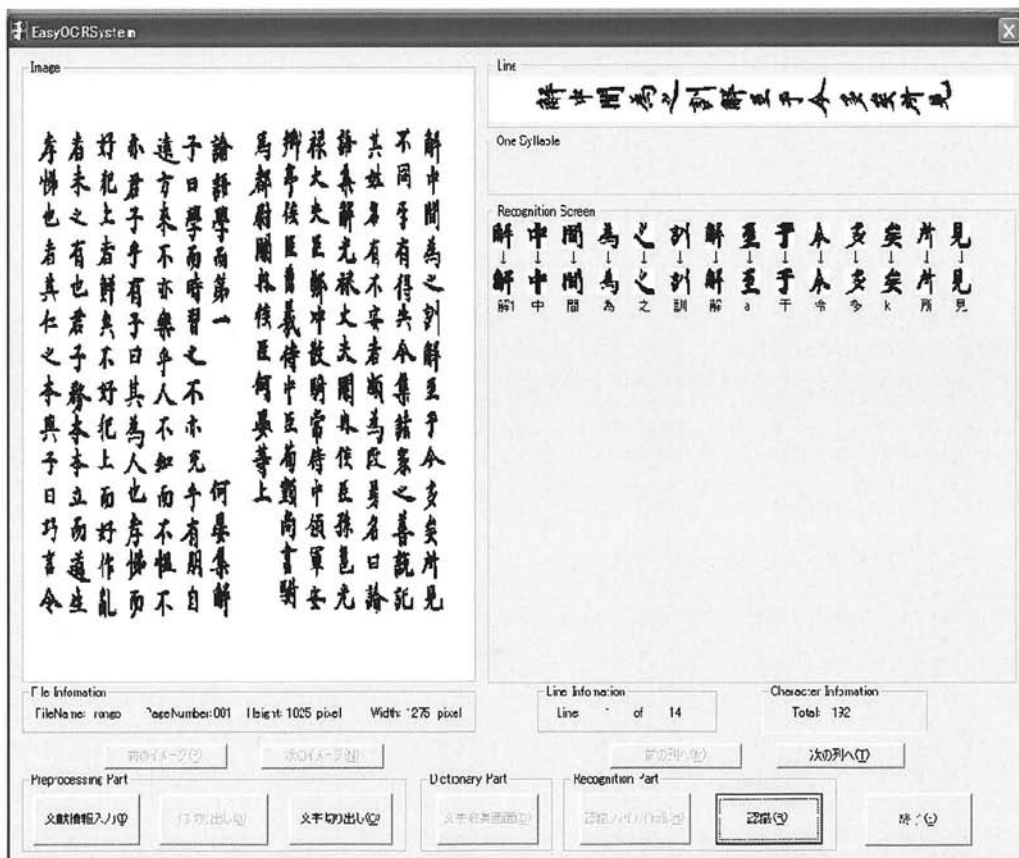 EasyOCRSystem
Image
解中間為之訓解至于今多矣所見
不同互有得失今集諸家之善説記
其姓名有不安者頗為改易名曰論
語集解光禄大夫關内侯臣孫邕光
禄大夫臣鄭冲散騎常侍中領軍安
郷亭侯臣曹羲侍中臣荀顗尚書駙
馬都尉關内侯臣何晏等上
論語學而第一 何晏集解
子曰學而時習之不亦兌乎有朋自
遠方來不亦樂乎人不知而不愠不
亦君子乎有子曰其為人也孝悌而
好犯上者鮮矣不好犯上而好作亂
者未之有也君子務本本立而道生
孝悌也者其仁之本與子曰巧言令
Line
解中間為之訓解至于今多矣所見
One Syllable
Recognition Screen
解中間為之訓解至于今多矣所見
↓ ↓ ↓ ↓ ↓ ↓ ↓ ↓ ↓ ↓ ↓ ↓ ↓ ↓
解中間為之訓解至于今多矣所見
解1 中 間 為 之 訓 解 a 于 令 多 k 所 見
File Infomation
FileName: rongo PageNumber:001 Height: 1025 pixel Width: 1275 pixel
Line Infomation
Line: 1 of 14
Character Infomation
Total: 192
前のイメージ(P) 次のイメージ(N)
次の列へ(T)
Preprocessing Part
文献情報入力(I) 行切り出し 文字切り出し(C)
Dictionary Part
Recognition Part
認識(R)
終了